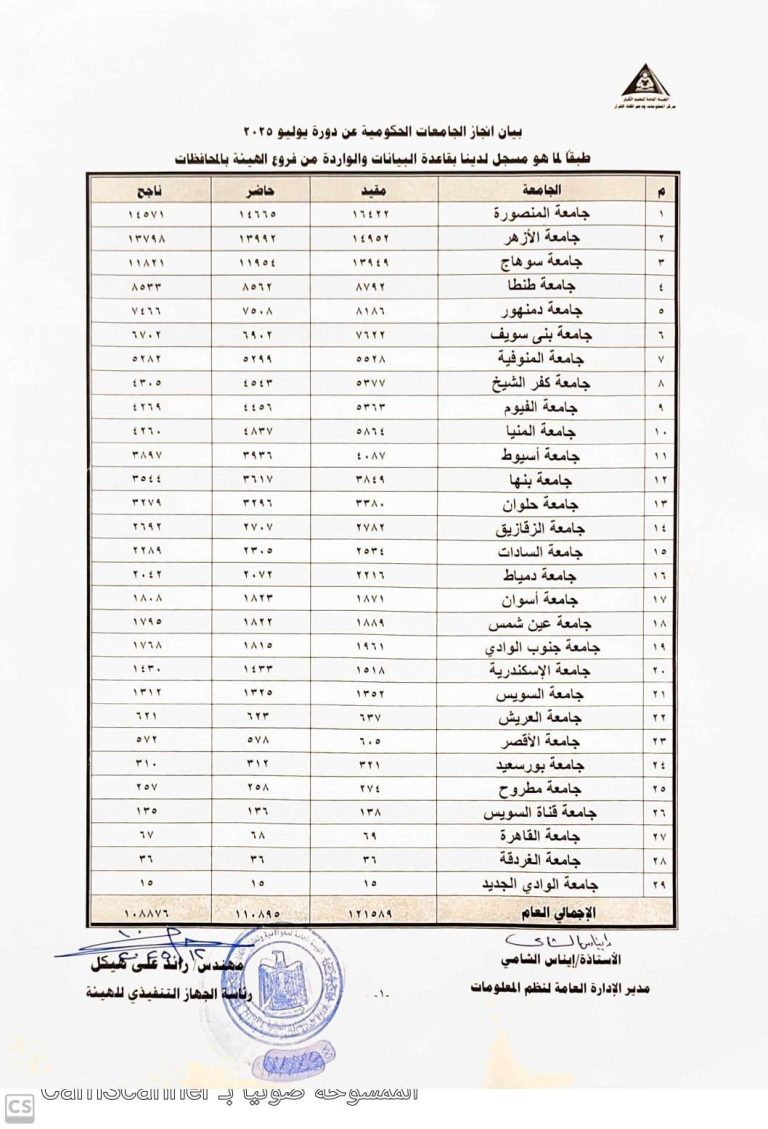 الهيئة العامة لتعليم الكبار
مركز المعلومات ودعم اتخاذ القرار
بيان انجاز الجامعات الحكومية عن دورة يوليو ٢٠٢٥
طبقًا لما هو مسجل لدينا بقاعدة البيانات والواردة من فروع الهيئة بالمحافظات
م الجامعة مقيد حاضر ناجح
١ جامعة المنصورة ١٦٤٢٢ ١٤٦٦٥ ١٤٥٧١
٢ جامعة الأزهر ١٤٩٥٢ ١٣٩٩٢ ١٣٧٩٨
٣ جامعة سوهاج ١٣٩٤٩ ١١٩٥٤ ١١٨٢١
٤ جامعة طنطا ٨٧٩٢ ٨٥٦٢ ٨٥٣٣
٥ جامعة دمنهور ٨١٨٦ ٧٥٠٨ ٧٤٦٦
٦ جامعة بنى سويف ٧٦٢٢ ٦٩٠٢ ٦٧٠٢
٧ جامعة المنوفية ٥٥٢٨ ٥٢٩٩ ٥٢٨٢
٨ جامعة كفر الشيخ ٥٣٧٧ ٤٥٤٣ ٤٣٠٥
٩ جامعة الفيوم ٥٣٦٣ ٤٤٥٦ ٤٢٦٩
١٠ جامعة المنيا ٥٨٦٤ ٤٨٣٧ ٤٢٦٠
١١ جامعة أسيوط ٤٠٨٧ ٣٩٣٦ ٣٨٩٧
١٢ جامعة بنها ٣٨٤٩ ٣٦١٧ ٣٥٤٤
١٣ جامعة حلوان ٣٣٨٠ ٣٢٩٦ ٣٢٧٩
١٤ جامعة الزقازيق ٢٧٨٢ ٢٧٠٧ ٢٦٩٢
١٥ جامعة السادات ٢٥٣٤ ٢٣٠٥ ٢٢٨٩
١٦ جامعة دمياط ٢٢١٦ ٢٠٧٢ ٢٠٤٢
١٧ جامعة أسوان ١٨٧١ ١٨٢٣ ١٨٠٨
١٨ جامعة عين شمس ١٨٨٩ ١٨٢٢ ١٧٩٥
١٩ جامعة جنوب الوادي ١٩٦١ ١٨١٥ ١٧٦٨
٢٠ جامعة الإسكندرية ١٥١٨ ١٤٣٣ ١٤٣٠
٢١ جامعة السويس ١٣٥٢ ١٣٢٥ ١٣١٢
٢٢ جامعة العريش ٦٣٧ ٦٢٣ ٦٢١
٢٣ جامعة الأقصر ٦٠٥ ٥٧٨ ٥٧٢
٢٤ جامعة بورسعيد ٣٢١ ٣١٢ ٣١٠
٢٥ جامعة مطروح ٢٧٤ ٢٥٨ ٢٥٧
٢٦ جامعة قناة السويس ١٣٨ ١٣٦ ١٣٥
٢٧ جامعة القاهرة ٦٩ ٦٨ ٦٧
٢٨ جامعة الغردقة ٣٦ ٣٦ ٣٦
٢٩ جامعة الوادي الجديد ١٥ ١٥ ١٥
الإجمالي العام ١٢١٥٨٩ ١١٠٨٩٥ ١٠٨٨٧٦
إيناس الشامي
الأستاذة/إيناس الشامي
مدير الإدارة العامة لنظم المعلومات
-١-
مهندس/ رائد على هيكل
رئاسة الجهاز التنفيذي للهيئة
الممسوحة ضوئيا بـ CamScanner
CS